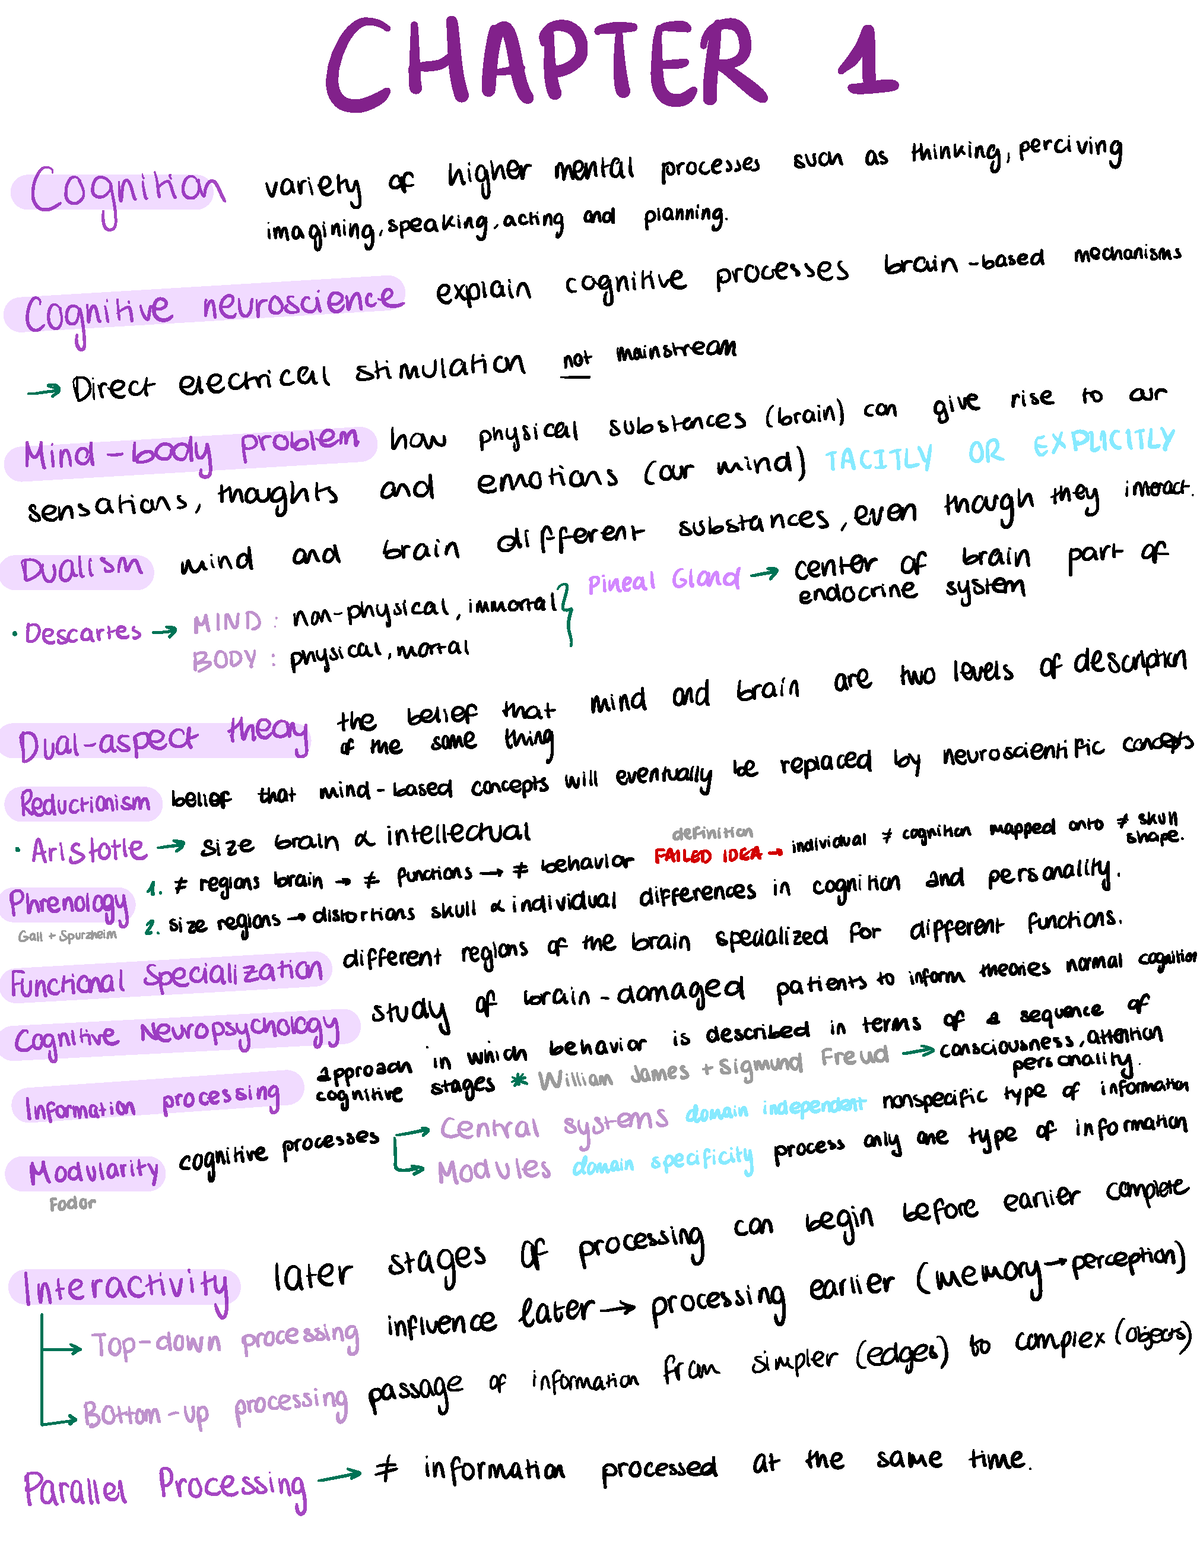 CHAPTER 1
Cognition variety of higher mental processes such as thinking, perciving
imagining, speaking, acting and planning.
Cognitive neuroscience explain cognitive processes brain-based mechanisms
→ Direct electrical stimulation not mainstream
Mind-body problem how physical substances (brain) can give rise to our
sensations, thoughts and emotions (our mind) TACITLY OR EXPLICITLY
Dualism mind and brain different substances, even though they interact.
• Descartes → MIND : non-physical, immortal } Pineal Gland → center of brain part of
endocrine system
BODY : physical, mortal
Dual-aspect theory the belief that mind and brain are two levels of description
of the same thing
Reductionism belief that mind-based concepts will eventually be replaced by neuroscientific concepts
• Aristotle → size brain α intellectual
Phrenology 1. ≠ regions brain → ≠ functions → ≠ behavior definition FAILED IDEA → individual ≠ cognition mapped onto ≠ skull
shape.
Gall + Spurzheim 2. size regions → distortions skull α individual differences in cognition and personality.
Functional Specialization different regions of the brain specialized for different functions.
Cognitive Neuropsychology study of brain-damaged patients to inform theories normal cognition
Information processing approach in which behavior is described in terms of a sequence of
cognitive stages * William James + Sigmund Freud → consciousness, attention
personality.
Modularity cognitive processes → Central systems domain independent nonspecific type of information
→ Modules domain specificity process only one type of information
Fodor
Interactivity later stages of processing can begin before earlier complete
→ Top-down processing influence later → processing earlier (memory → perception)
→ Bottom-up processing passage of information from simpler (edges) to complex (objects)
Parallel Processing → ≠ information processed at the same time.